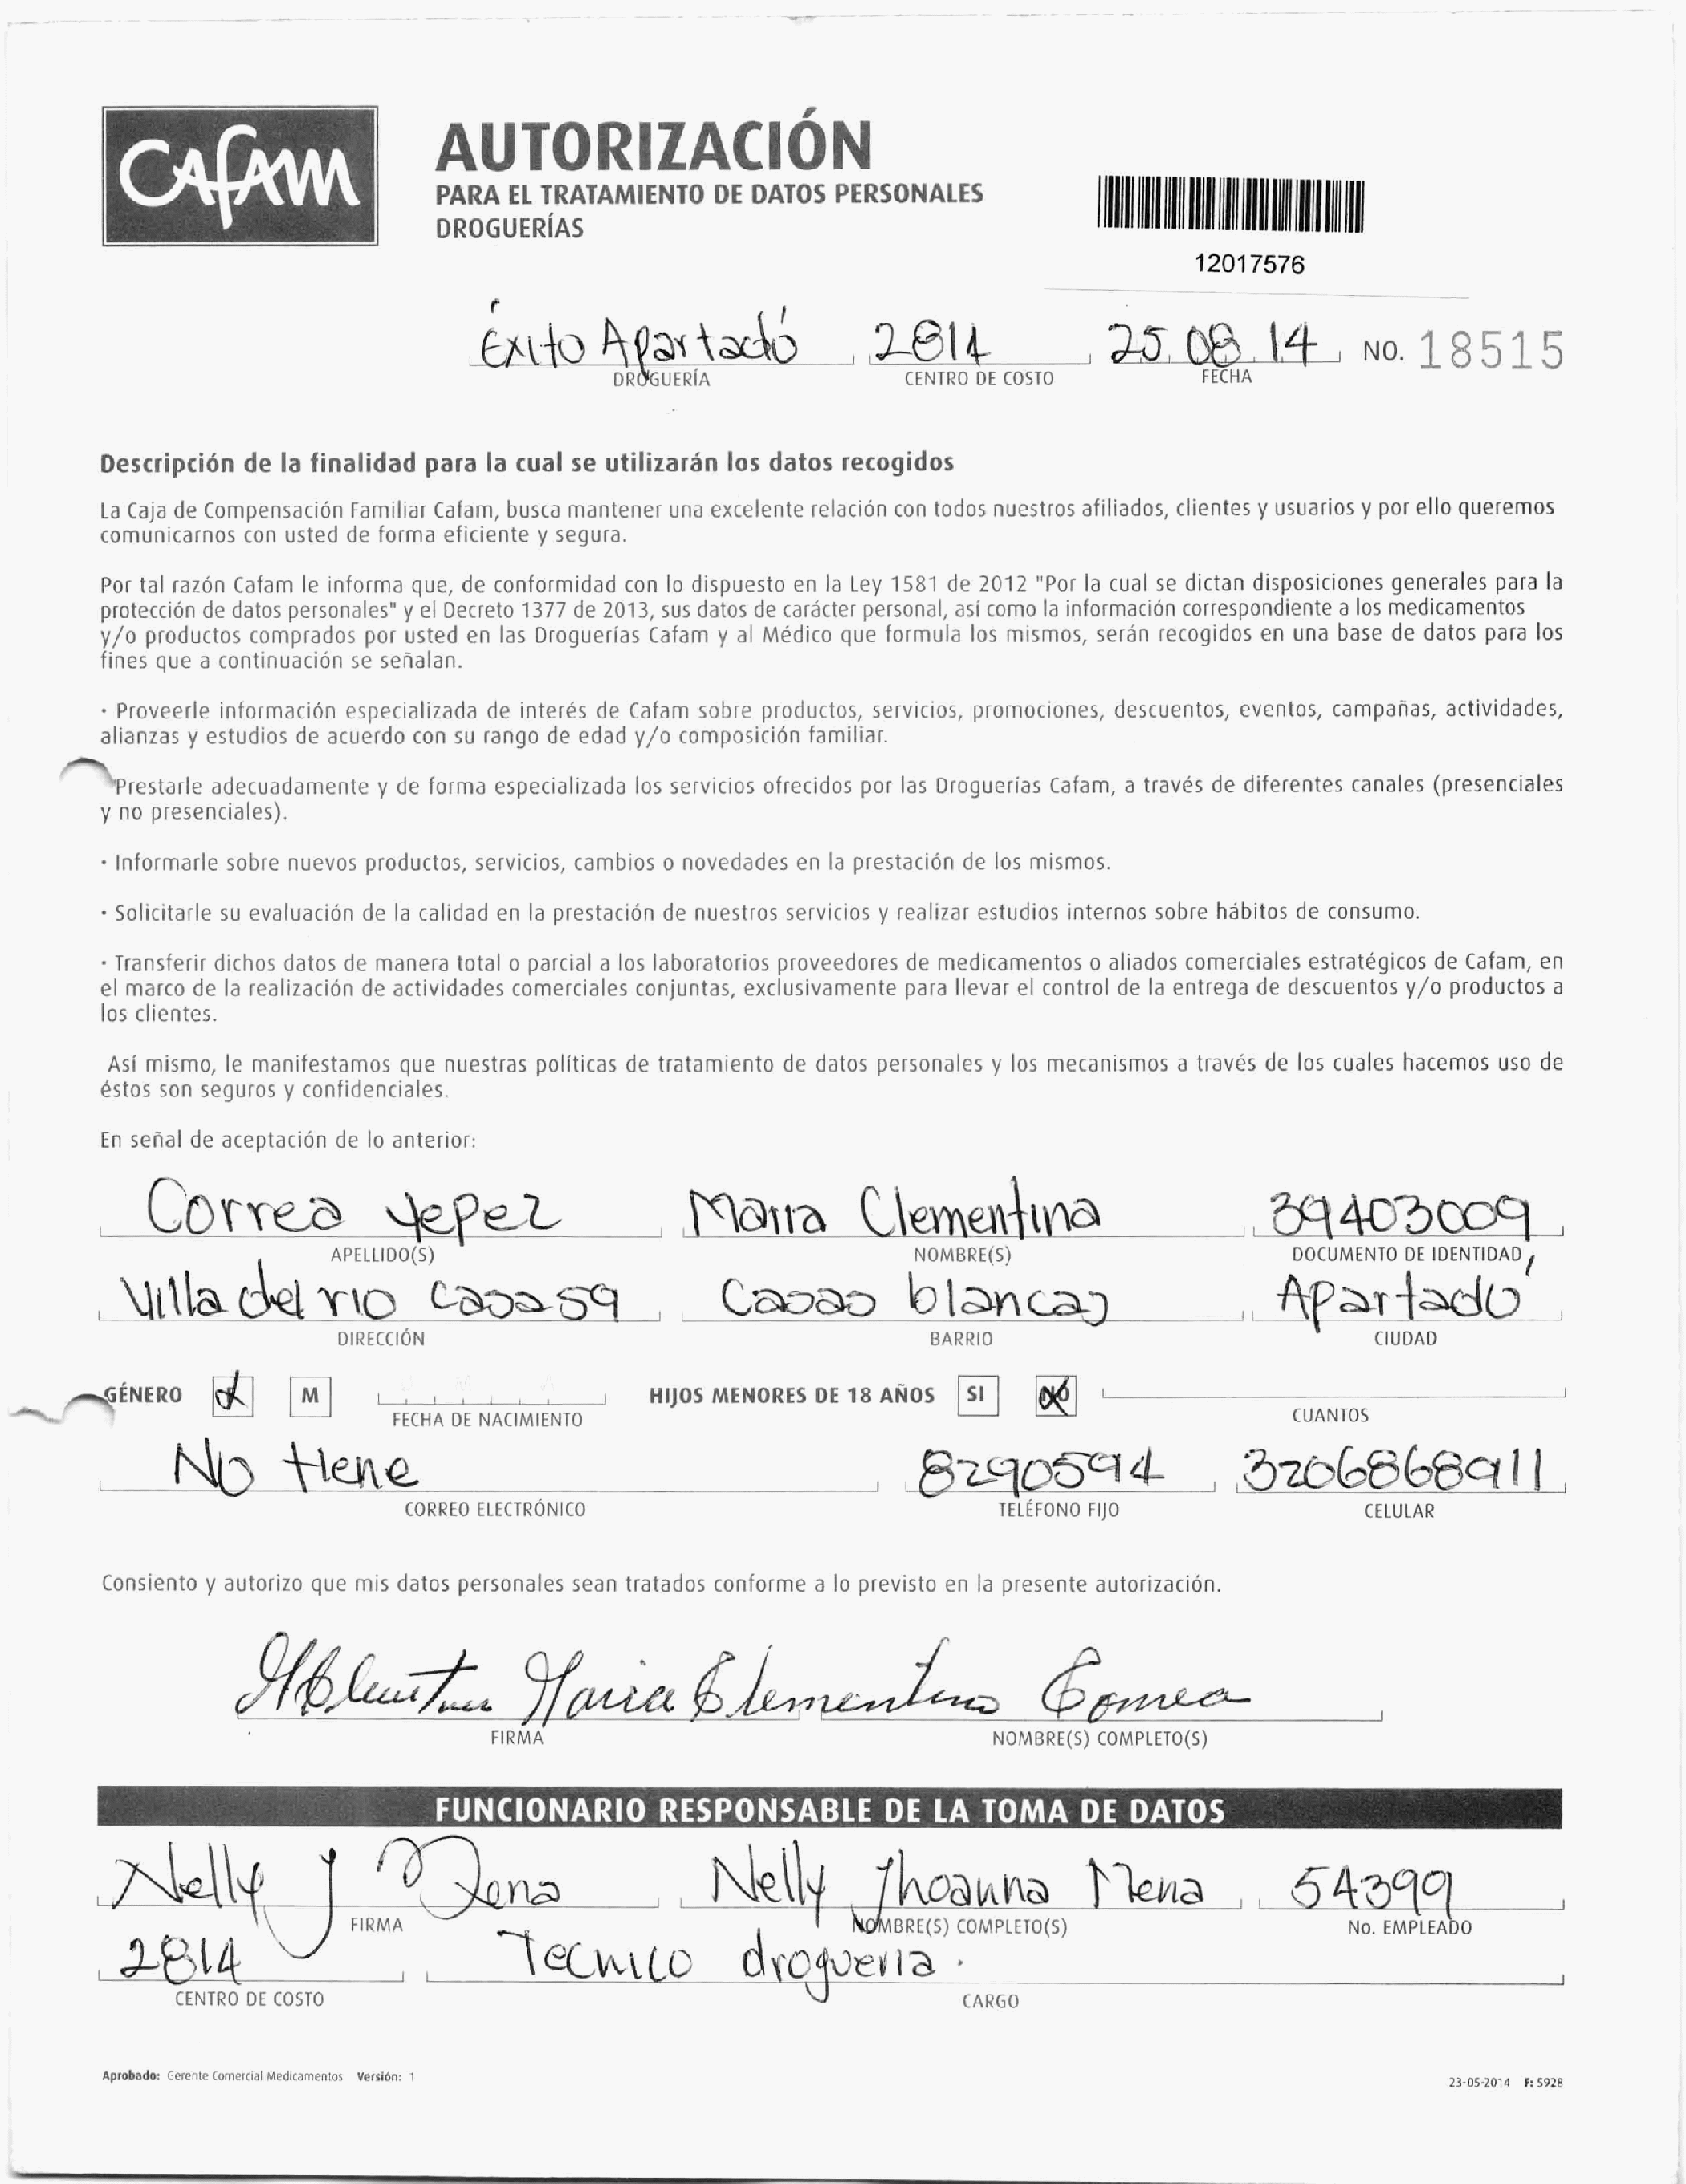 CAFAM
AUTORIZACIÓN
PARA EL TRATAMIENTO DE DATOS PERSONALES
DROGUERÍAS
12017576
Éxito Apartadó 2814 25 08 14 NO. 18515
DROGUERÍA CENTRO DE COSTO FECHA
Descripción de la finalidad para la cual se utilizarán los datos recogidos
La Caja de Compensación Familiar Cafam, busca mantener una excelente relación con todos nuestros afiliados, clientes y usuarios y por ello queremos
comunicarnos con usted de forma eficiente y segura.
Por tal razón Cafam le informa que, de conformidad con lo dispuesto en la Ley 1581 de 2012 "Por la cual se dictan disposiciones generales para la
protección de datos personales" y el Decreto 1377 de 2013, sus datos de carácter personal, así como la información correspondiente a los medicamentos
y/o productos comprados por usted en las Droguerías Cafam y al Médico que formula los mismos, serán recogidos en una base de datos para los
fines que a continuación se señalan.
· Proveerle información especializada de interés de Cafam sobre productos, servicios, promociones, descuentos, eventos, campañas, actividades,
alianzas y estudios de acuerdo con su rango de edad y/o composición familiar.
Prestarle adecuadamente y de forma especializada los servicios ofrecidos por las Droguerías Cafam, a través de diferentes canales (presenciales
y no presenciales).
· Informarle sobre nuevos productos, servicios, cambios o novedades en la prestación de los mismos.
· Solicitarle su evaluación de la calidad en la prestación de nuestros servicios y realizar estudios internos sobre hábitos de consumo.
· Transferir dichos datos de manera total o parcial a los laboratorios proveedores de medicamentos o aliados comerciales estratégicos de Cafam, en
el marco de la realización de actividades comerciales conjuntas, exclusivamente para llevar el control de la entrega de descuentos y/o productos a
los clientes.
Así mismo, le manifestamos que nuestras políticas de tratamiento de datos personales y los mecanismos a través de los cuales hacemos uso de
éstos son seguros y confidenciales.
En señal de aceptación de lo anterior:
Correa Yepez Maria Clementina 39403009
APELLIDO(S) NOMBRE(S) DOCUMENTO DE IDENTIDAD
Villa del rio casa 59 Casas blancas Apartadó
DIRECCIÓN BARRIO CIUDAD
GÉNERO M HIJOS MENORES DE 18 AÑOS SI NO
FECHA DE NACIMIENTO CUANTOS
No tiene 8290594 3206868911
CORREO ELECTRÓNICO TELÉFONO FIJO CELULAR
Consiento y autorizo que mis datos personales sean tratados conforme a lo previsto en la presente autorización.
Maria Clementina Correa
FIRMA NOMBRE(S) COMPLETO(S)
FUNCIONARIO RESPONSABLE DE LA TOMA DE DATOS
Nelly J Mena Nelly Jhoanna Mena 54399
FIRMA NOMBRE(S) COMPLETO(S) No. EMPLEADO
2814 Tecnico drogueria.
CENTRO DE COSTO CARGO
Aprobado: Gerente Comercial Medicamentos Versión: 1
23-05-2014 F: 5928